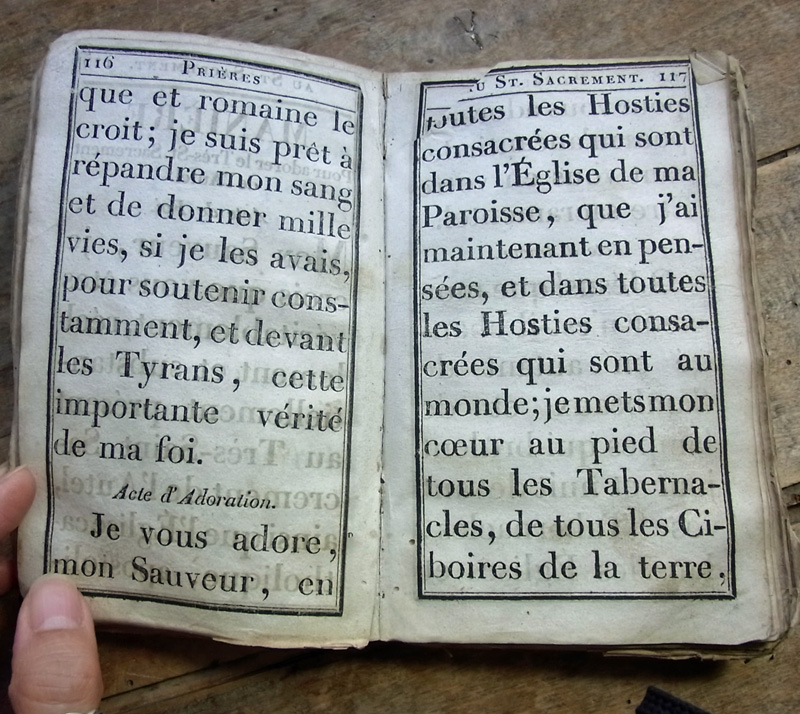 116 PRIÈRES
que et romaine le
croit; je suis prêt à
répandre mon sang
et de donner mille
vies, si je les avais,
pour soutenir cons-
tamment, et devant
les Tyrans, cette
importante vérité
de ma foi.
Acte d'Adoration.
Je vous adore,
mon Sauveur, en
U ST. SACREMENT. 117
toutes les Hosties
consacrées qui sont
dans l'Église de ma
Paroisse, que j'ai
maintenant en pen-
sées, et dans toutes
les Hosties consa-
crées qui sont au
monde; je mets mon
cœur au pied de
tous les Taberna-
cles, de tous les Ci-
boires de la terre,